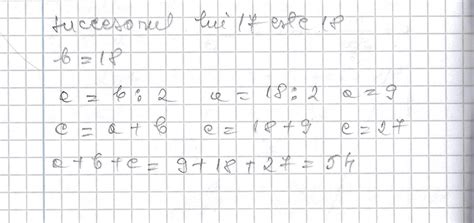 succesorul lui 17 este 18
b = 18
a = b : 2 a = 18 : 2 a = 9
c = a + b c = 18 + 9 c = 27
a + b + c = 9 + 18 + 27 = 54